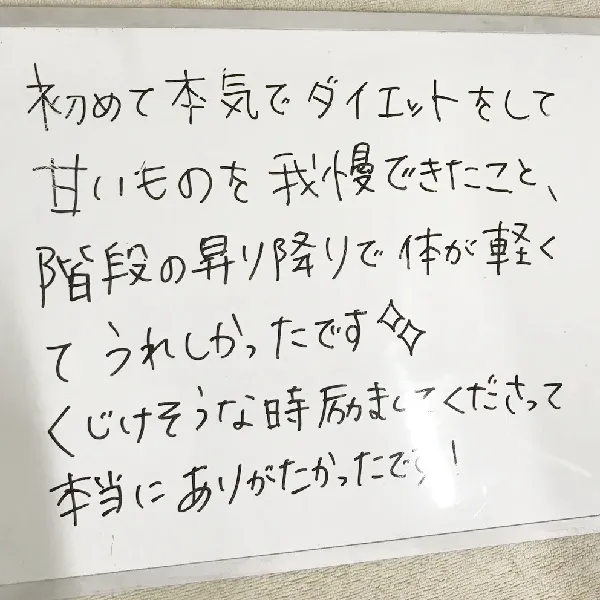 初めて本気でダイエットをして
甘いものを我慢できたこと、
階段の昇り降りで体が軽く
てうれしかったです✧✧
くじけそうな時励ましてくださって
本当にありがたかったです!